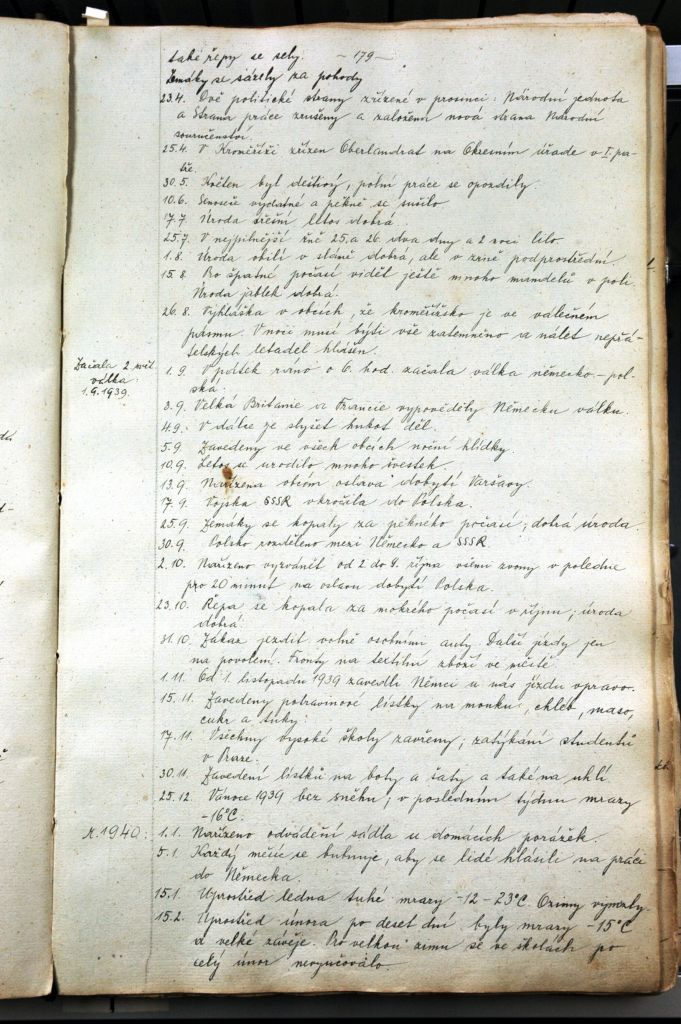 také řepy se sely. — 179 —
Zemáky se sázely za pohody
23.4. Dvě politické strany zřízené v prosinci: Národní jednota
a Strana práce zrušeny a založena nová strana Národní
souručenství.
25.4. V Kroměříži zřízen Oberlandrat na Okresním úřadě v I. pa-
tře.
30.5. Květen byl deštivý, polní práce se opozdily.
10.6. Senoseče vydatné a pěkně se sušilo
17.7. Úroda třešní letos dobrá
25.7. V nejpilnější žně 25. a 26. dva dny a 2 noci lilo.
1.8. Úroda obilí v slámě dobrá, ale v zrně podprostřední.
15.8. Pro špatné počasí vidět ještě mnoho mandelů v poli.
Úroda jablek dobrá.
26.8. Vyhláška v obcích, že kroměřížsko je ve válečném
pásmu. V noci musí býti vše zatemněno a nálet nepřá-
telských letadel hlášen.
Začala 2. svět.
válka
1.9.1939.
1.9. V pátek ráno o 6. hod. začala válka německo-pol-
ská.
3.9. Velká Britanie a Francie vypověděly Německu válku.
4.9. V dálce je slyšet hukot děl.
5.9. Zavedeny ve všech obcích noční hlídky.
10.9. Letos se urodilo mnoho švestek.
13.9. Nařízena obcím oslava dobytí Varšavy.
17.9. Vojska SSSR vkročila do Polska.
25.9. Zemáky se kopaly za pěkného počasí; dobrá úroda.
30.9. Polsko rozděleno mezi Německo a SSSR.
2.10. Nařízeno vyzvánět od 2 do 9. října všemi zvony v poledne
pro 20 minut na oslavu dobytí Polska.
23.10. Řepa se kopala za mokrého počasí v říjnu; úroda
dobrá.
31.10. Zákaz jezdit volně osobními auty. Další jízdy jen
na povolení. Fronty na textilní zboží ve městě.
1.11. Od 1. listopadu 1939 zavedli Němci u nás jízdu vpravo.
15.11. Zavedeny potravinové lístky na mouku, chléb, maso,
cukr a tuky.
17.11. Všechny vysoké školy zavřeny; zatýkání studentů
v Praze.
30.11. Zavedení lístků na boty a šaty a také na uhlí.
25.12. Vánoce 1939 bez sněhu; v posledním týdnu mrazy
-16°C.
R. 1940: 1.1. Nařízeno odvádění sádla u domácích porážek.
5.1. Každý měsíc se bubnuje, aby se lidé hlásili na práci
do Německa.
15.1. Uprostřed ledna tuhé mrazy -12 -23°C. Ozimy vymrzly.
15.2. Uprostřed února po deset dní byly mrazy -15°C
a velké závěje. Pro velkou zimu se ve školách po
celý únor nevyučovalo.